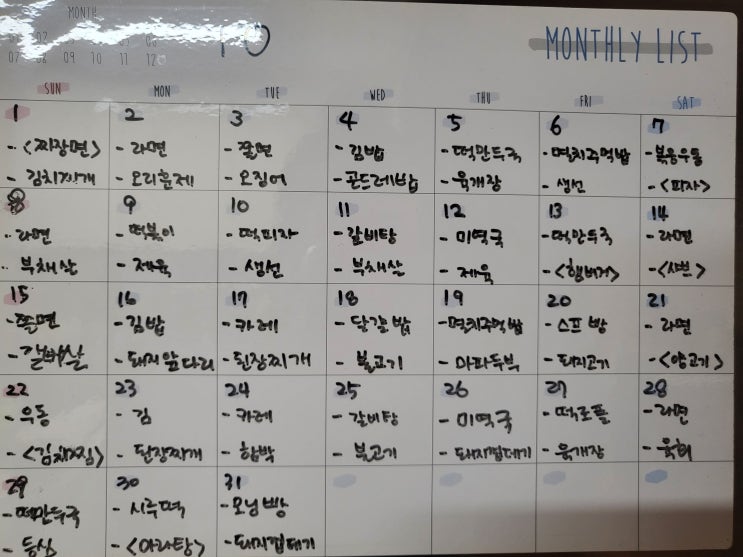 MONTH
07 08 09 10 11 12
10
MONTHLY LIST
SUN MON TUE WED THU FRI SAT
1 2 3 4 5 6 7
- <짜장면> - 라면 - 쫄면 - 김밥 - 떡만두국 - 멸치주먹밥 - 볶음우동
- 김치찌개 - 오리훈제 - 오징어 - 곤드레밥 - 육개장 - 생선 - <피자>
8 9 10 11 12 13 14
- 라면 - 떡볶이 - 떡피자 - 갈비탕 - 미역국 - 떡만두국 - 라면
- 부채살 - 제육 - 생선 - 부채살 - 제육 - <햄버거> - <샤브>
15 16 17 18 19 20 21
- 쫄면 - 김밥 - 카레 - 달걀밥 - 멸치주먹밥 - 스프빵 - 라면
- 갈비살 - 돼지앞다리 - 된장찌개 - 불고기 - 마파두부 - 돼지고기 - <양고기>
22 23 24 25 26 27 28
- 우동 - 김 - 카레 - 갈비탕 - 미역국 - 떡로플 - 라면
- <김치찜> - 된장찌개 - 함박 - 불고기 - 돼지껍데기 - 육개장 - 육회
29 30 31
- 떡만두국 - 시루떡 - 모닝빵
- 등심 - <마라탕> - 돼지껍데기